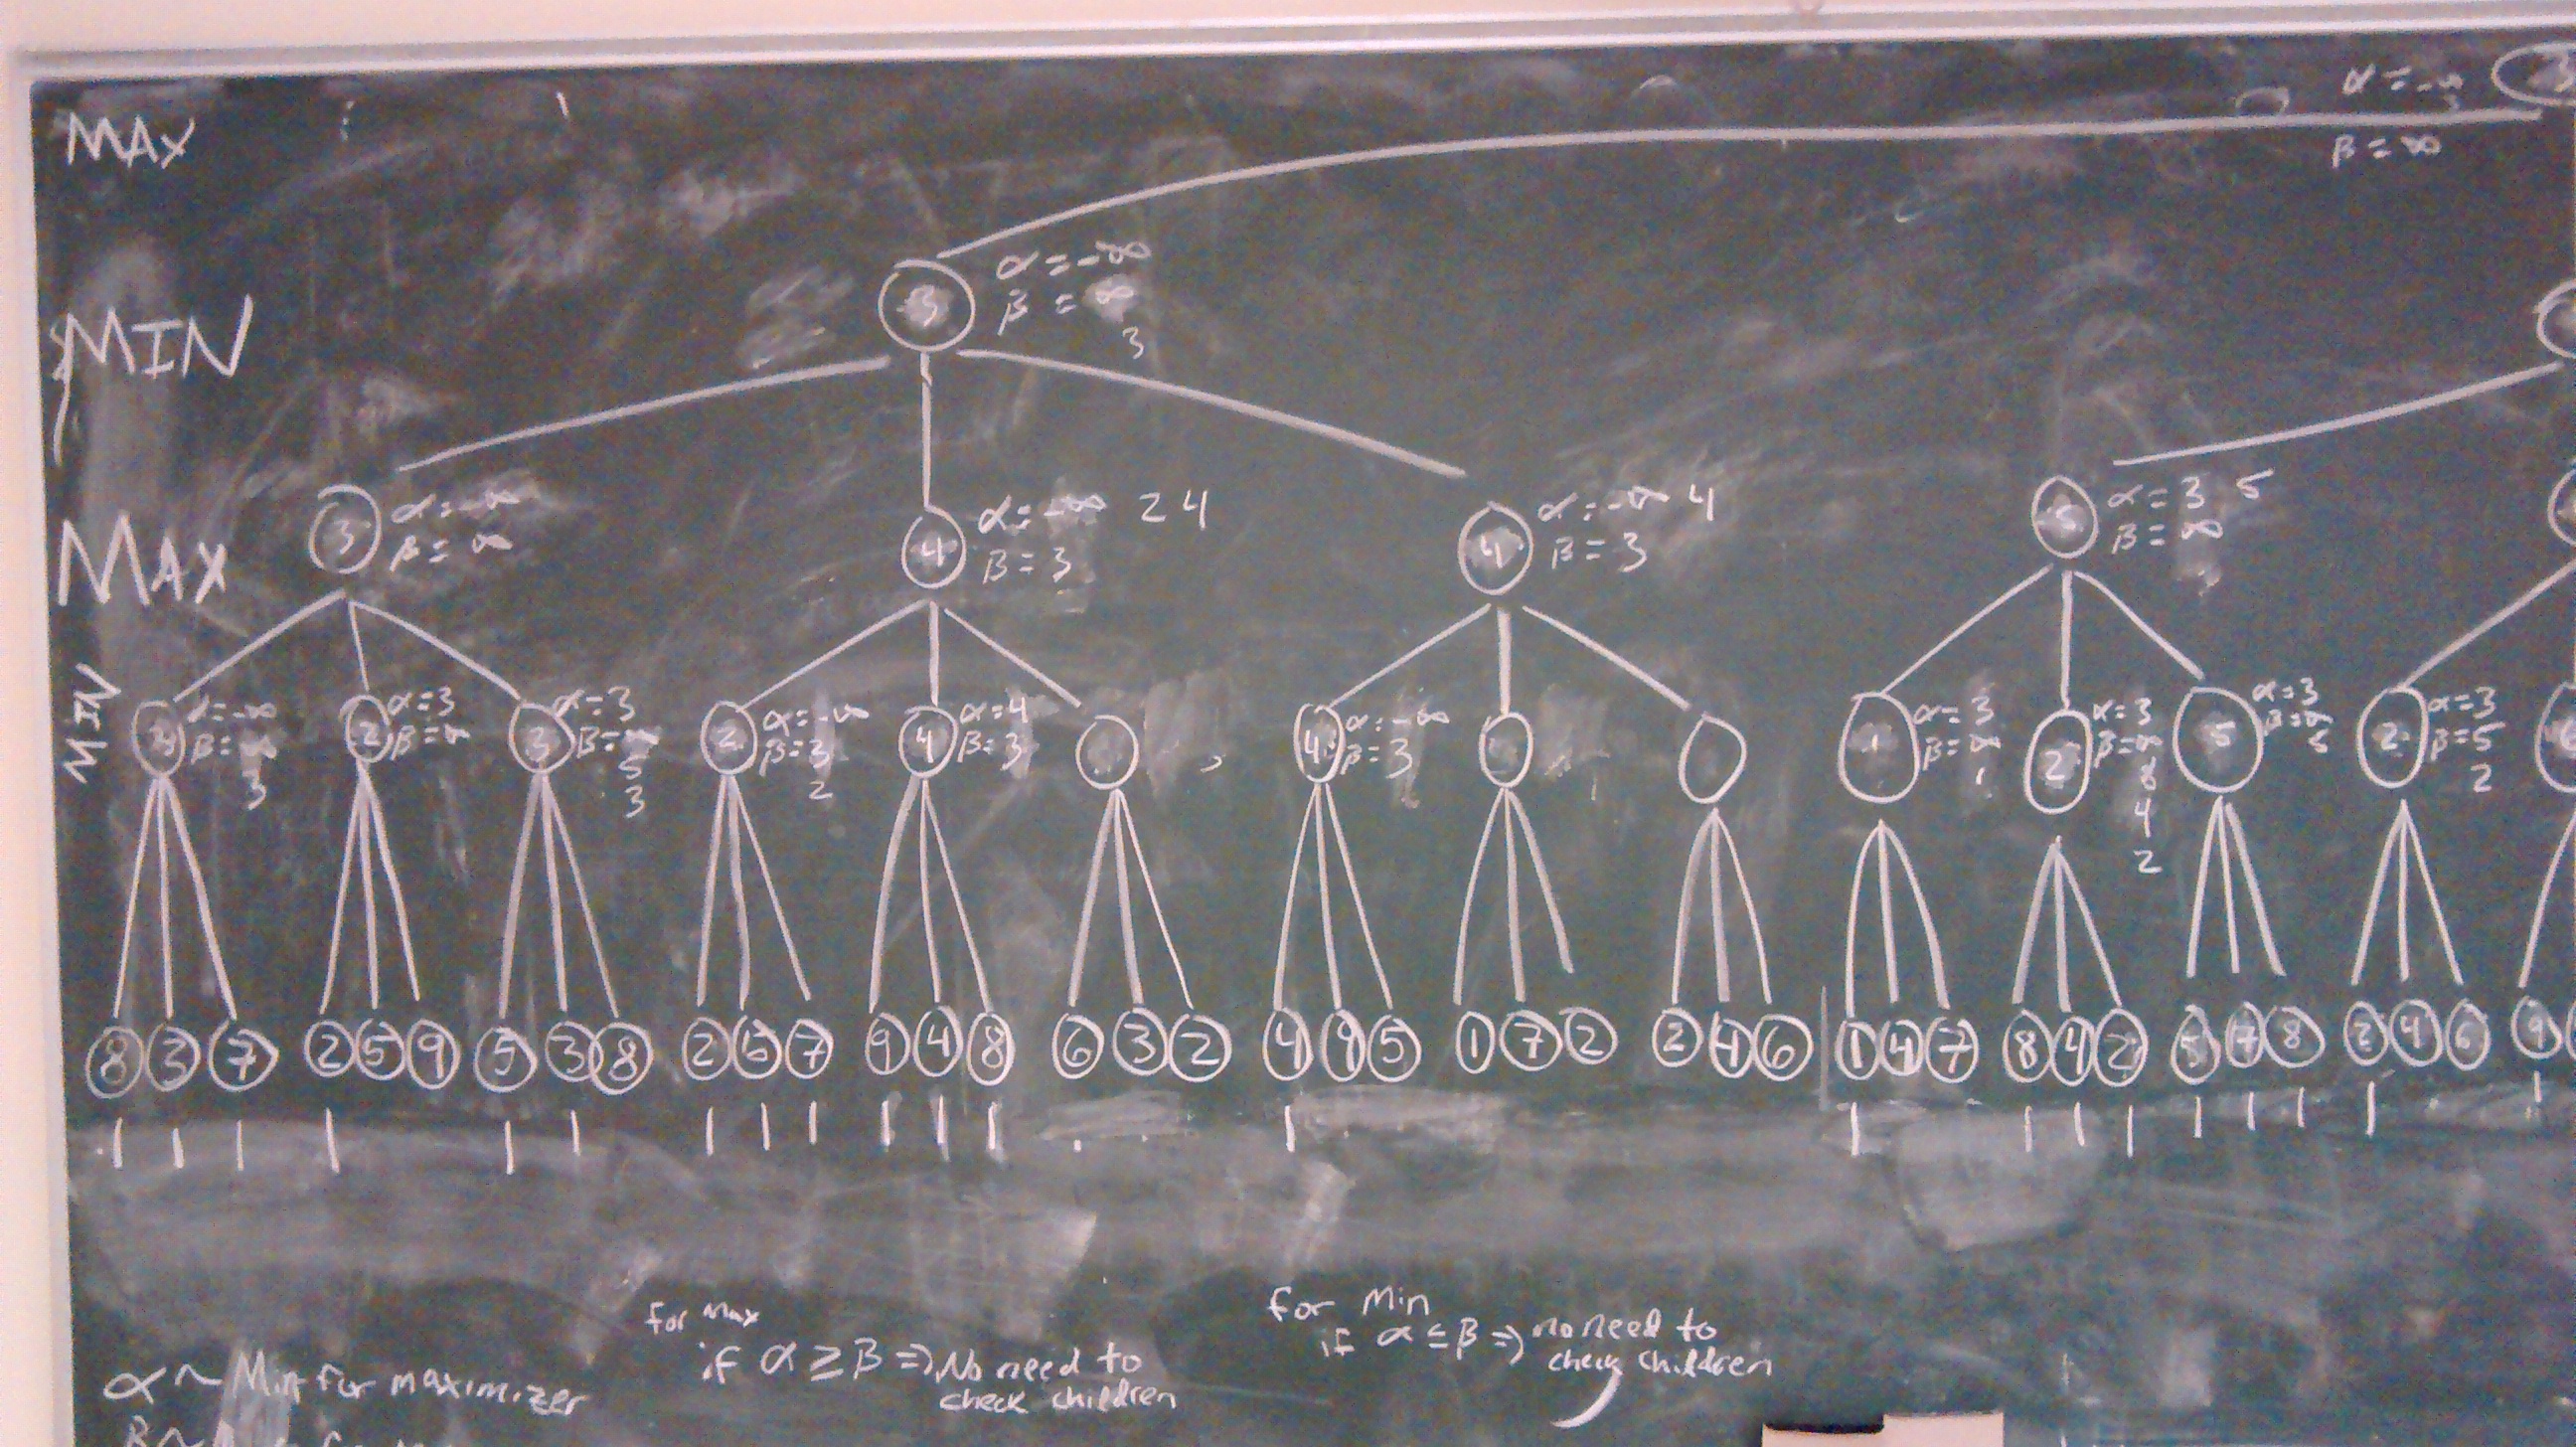 MAX
α = -∞
β = ∞
MIN
3
α = -∞
β = ∞
3
MAX
3
α = -∞
β = ∞
4
α = -∞ 2 4
β = 3
4
α = -∞ 4
β = 3
5
α = 3 5
β = ∞
MIN
3
α = -∞
β = ∞
3
2
α = 3
β = ∞
3
α = 3
β = ∞
5
3
2
α = -∞
β = 3
2
4
α = 4
β = 3
4
α = -∞
β = 3
1
α = 3
β = ∞
1
2
α = 3
β = ∞
8
4
2
5
α = 3
β = ∞
5
2
α = 3
β = 5
2
8 3 7 2 5 9 5 3 8 2 6 7 9 4 8 6 3 2 4 9 5 1 7 2 2 4 6 1 4 7 8 4 2 5 7 8 2 4 6 9
for Max
if α ≥ β => No need to
check children
for Min
if α ≤ β => no need to
check children
α ~ Min for maximizer